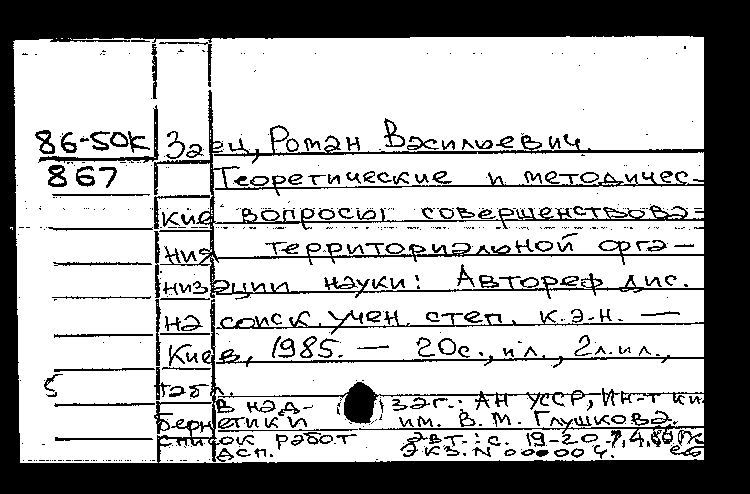 86-50к
867
Заец, Роман Васильевич.
Теоретические и методичес-
кие вопросы совершенствова-
ния территориальной орга-
низации науки: Автореф дис.
на соиск. учен. степ. к.э.н. —
Киев, 1985. — 20с., ил., 2л.ил.,
5 табл.
В над- заг.: АН УССР, Ин-т ки
бернетики им. В.М. Глушкова.
список работ авт.: с. 19-20
дсп. Экз. N 000004.